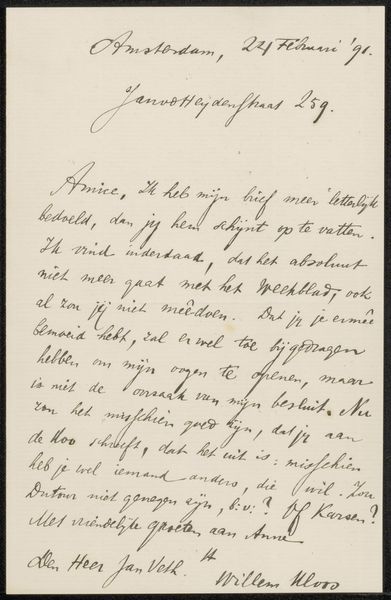 Amsterdam, 24 Februari '91.
Jan v d Heydenstraat 259.
Amice, Ik heb mijn brief meer letterlijk
bedoeld, dan jij hem schijnt op te vatten.
Ik vind inderdaad, dat het absoluut
niet meer gaat met het Weekblad, ook
al zou jij niet meêdoen. Dat jij je ermeê
bemoeid hebt, zal er wel toe bijgedragen
hebben om mijn oogen te openen, maar
is niet de oorzaak van mijn besluit. Nu
zou het misschien goed zijn, dat jij aan
de Koo schreeft, dat het uit is: misschien
heb je wel iemand anders, die wil. Zou
Dutour niet genegen zijn, b.v.? Of Karsen?
Met vriendelijke groeten aan Anna
Den Heer Jan Veth. tt
Willem Kloos